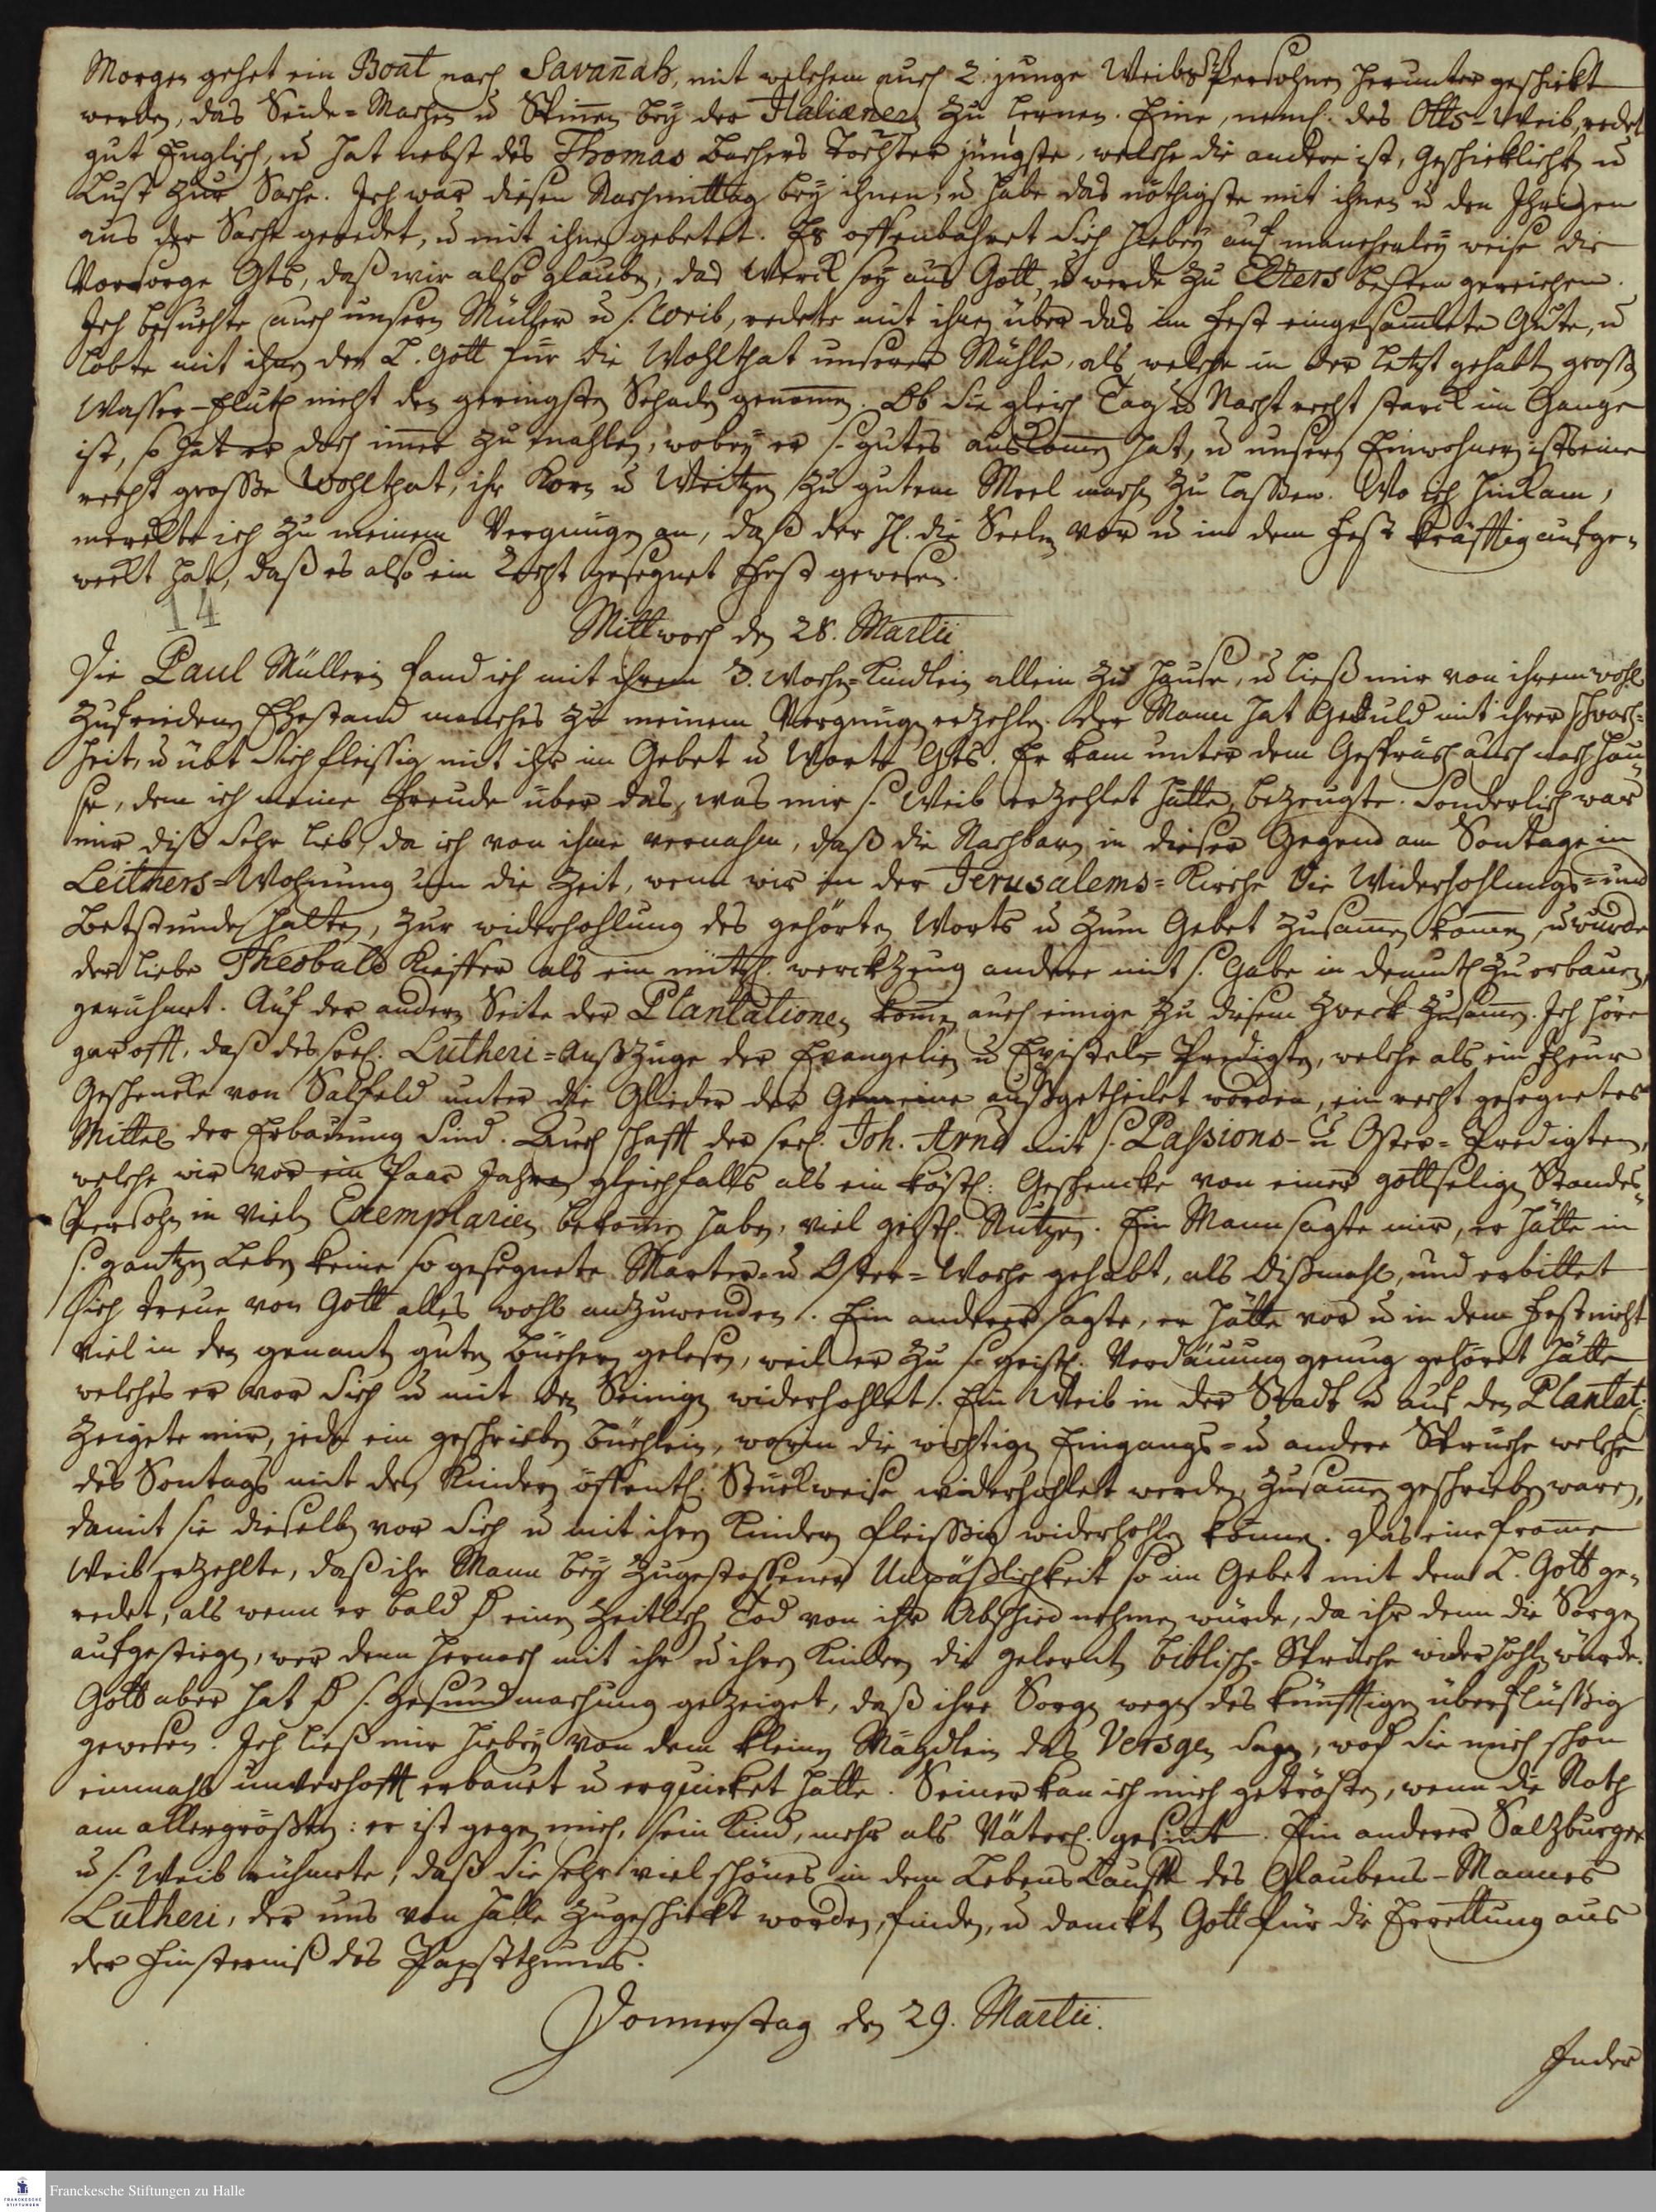 Morgen gehet ein Boat nach Savañah, mit welchem auch 2. junge Weibs Persohnen herunter geschickt
werden, das Seide-Machen u. Spinnen bey der Italiænerin zu lernen. Eine, neml. des Otts-Weib, redet
gut Englisch, u. hat nebst des Thomas Bachers Tochter jüngste, welche die andere ist, Geschicklichkt u
Lust zur Sache. Ich war diesen Nachmittag bey ihnen, u habe das nöthigste mit ihnen u den Ihrigen
aus der Sache geredet, u mit ihnen gebetet. Es offenbahret sich hiebey auf mancherley weise die
Vorsorge Gts, daß wir also glauben, das Werck sey aus Gott, u werde zu Ebezers besten gereichen.
Ich besuchte auch unsern Müller u s. Weib, redete mit ihnen über das im Fest eingesamlete Gute, u
lobte mit ihnen den L. Gott für die Wohlthat unserer Mühle, als welche in der letzt gehabten grossen
Wasser-Fluth nicht den geringsten Schaden genomen. Ob sie gleich Tag u Nacht recht starck im Gange
ist, so hat er doch imer zu mahlen, wobey er s. gutes auskomen hat, u unsern Einwohnern ists eine
recht grosse Wohlthat, ihr Korn u Weitzen zu gutem Meel machen zu lassen. Wo ich hinkam,
merckte ich zu meinem Vergnügen an, daß der H. die Seelen vor u in dem Fest kräfftig aufge-
weckt hat, daß es also ein Recht gesegnet Fest gewesen.
14
Mittwoch den 28. Martii
Die Paul Müllerin fand ich mit ihrem 3. Wochen-Kindlein allein zu Hause, u ließ mir von ihrem wohl
zufriedenen Ehestand manches zu meinem Vergnügen erzehlen. Der Mann hat Geduld mit ihrer schwach-
heit, u übt sich fleissig mit ihr im Gebet u Worte Gts. Er kam unter dem Gespräch auch nach Hau-
se, dem ich meine Freude über das, was mir s. Weib erzehlet hatte, bezeugte. Sonderlich war
mir diß sehr lieb, da ich von ihme vernahm, daß die Nachbarn in dieser Gegend am Sontage in
Leitners-Wohnung um die Zeit, wenn wir in der Jerusalems-Kirche die Widerhohlungs- und
Betstunde halten, zur widerhohlung des gehörten Worts u zum Gebet zusamen komen, u wurde
der liebe Theobald Kieffer als ein nützl. werckzeug andere mit s. Gabe in demuth zu erbauen,
gerühmt. Auf der andern Seite der Plantationen komen auch einige zu diesem Zweck zusamen. Ich höre
gar offt, daß des seel. Lutheri-Außzüge der Evangelien u Epistel-Predigten, welche als ein theur
Geschencke von Salfeld unter die Glieder der Gemeine außgetheilet worden, ein recht gesegnetes
Mittel der Erbauung sind. Auch schafft der seel. Joh. Arnd mit s. Passions- u Oster-Predigten,
welche wir vor ein Paar Jahren gleichfalls als ein köstl. Geschencke von einer gottseligen Standes-
Persohn in vielen Exemplarien bekomen haben, viel geistl. Nutzen. Ein Mann sagte mir, er hätte in
s. gantzen Leben keine so gesegnete Marter- u Oster-Woche gehabt, als dißmahl, und erbittet
sich treue von Gott alles wohl anzuwenden. Ein anderer sagte, er hätte vor u in dem Fest nicht
viel in den genanten guten Büchern gelesen, weil er zu s. geistl. Verdäuung genug gehöret hätte
welches er vor sich u mit den Seinigen widerhohlet. Ein Weib in der Stadt u auf den Plantat:
zeigete mir, jede ein geschrieben Büchlein, worin die wichtigen Eingangs- u andere Sprüche welche
des Sontags mit den Kindern öffentl. Stückweise widerhohlet werden, zusamen geschrieben waren,
damit sie dieselben vor sich u mit ihren Kindern fleissig widerhohlen könne. Das eine frome
Weib erzehlte, daß ihr Mann bey zugestossener Unpäßlichkeit so im Gebet mit dem L. Gott ge-
redet, als wenn er bald einen zeitlichen Tod von ihr Abschied nehmen würde, da ihr denn die Sorge
aufgestiegen, wer denn hernach mit ihr u ihren Kindern die gelernten biblischen Sprüche widerhohlen würde.
Gott aber hat s. Gesundmachung gezeiget, daß ihre Sorgen wegen des künfftigen überflüßig
gewesen. Ich ließ mir hiebey von dem kleinen Mägdlein das Versgen sagen, womit sie mich schon
einmahl unverhofft erbauet u erquicket hatte. Seiner kan ich mich getrösten, wenn die Noth
am allergrößten: er ist gegen mich, sein Kind, mehr als Väterl. gesint. Ein anderer Salzburger
u s. Weib rühmete, daß sie sehr viel schönes in dem Lebens Lauffe des Glaubens-Mannes
Lutheri, der uns von Halle zugeschickt worden, finden, u danckten Gott für die Errettung aus
der Finsterniß des Papstthums.
Donnerstag den 29. Martii.
In der
Franckesche Stiftungen zu Halle